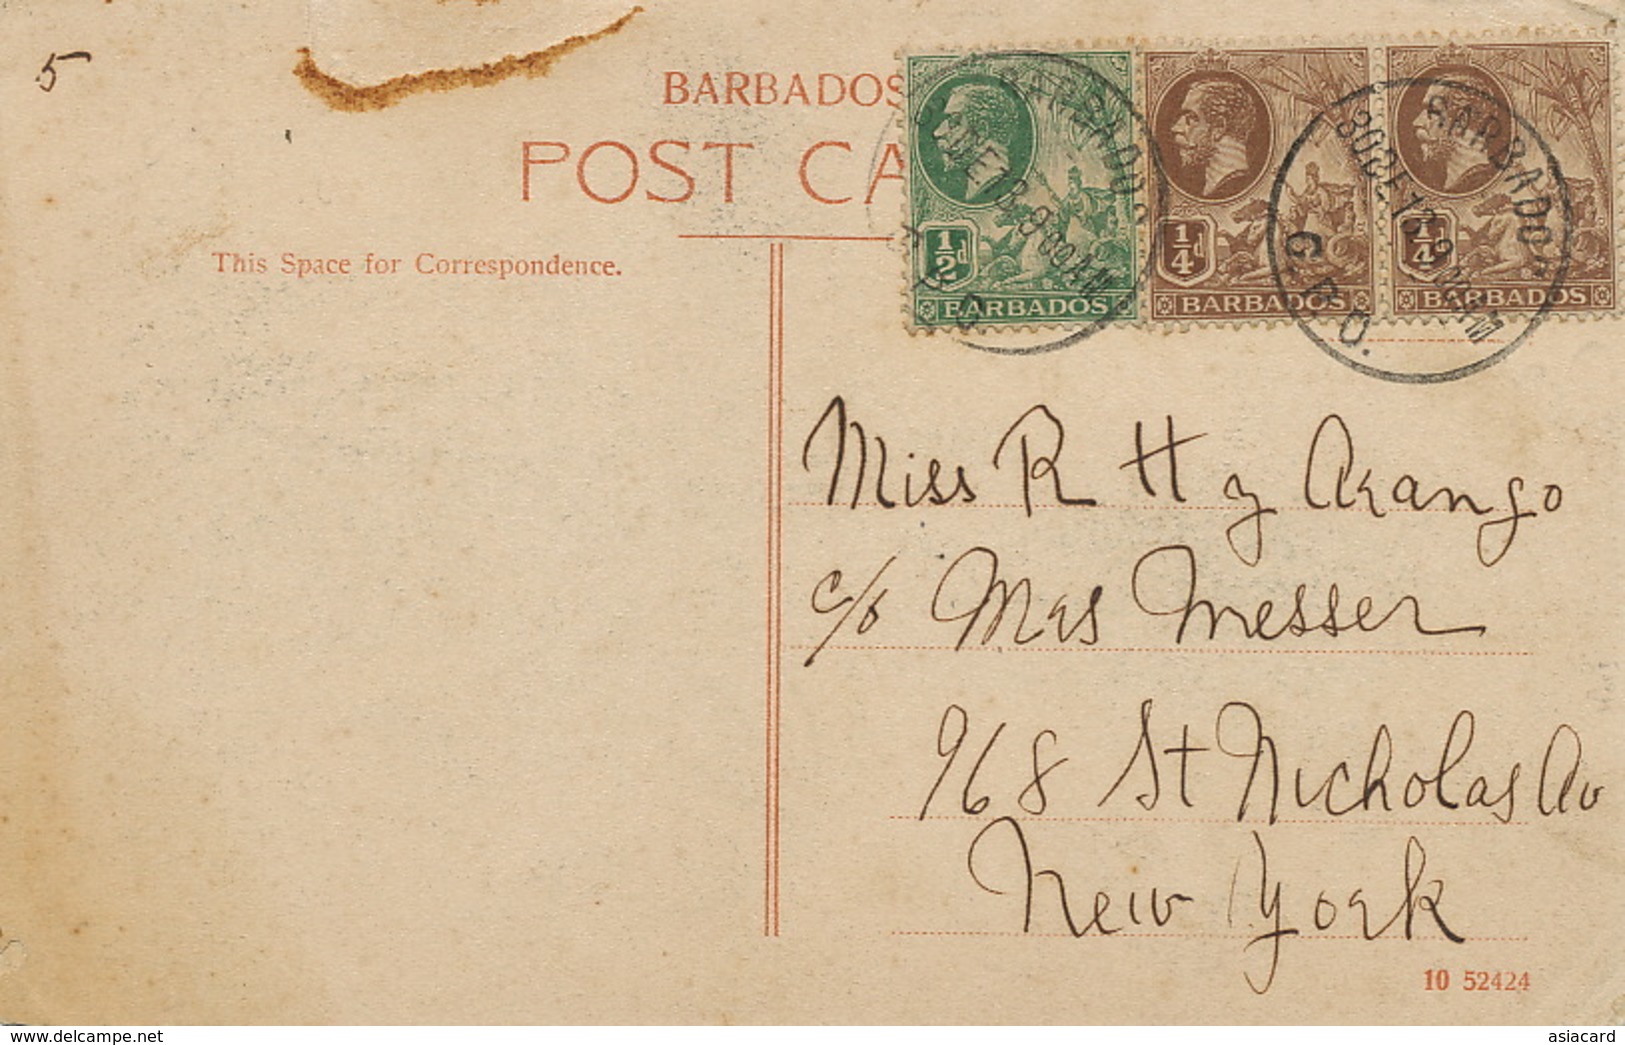 5
BARBADOS
POST CA
This Space for Correspondence.
½d
BARBADOS
¼d
BARBADOS
¼d
BARBADOS
BARBADOS
30 DE 13 9 00 AM
G.P.O.
BARBADOS
30 DE 13 9 00 AM
G.P.O.
Miss R H y Arango
c/o Mrs Messer
968 St Nicholas Av
New York
10 52424
www.delcampe.net
asiacard